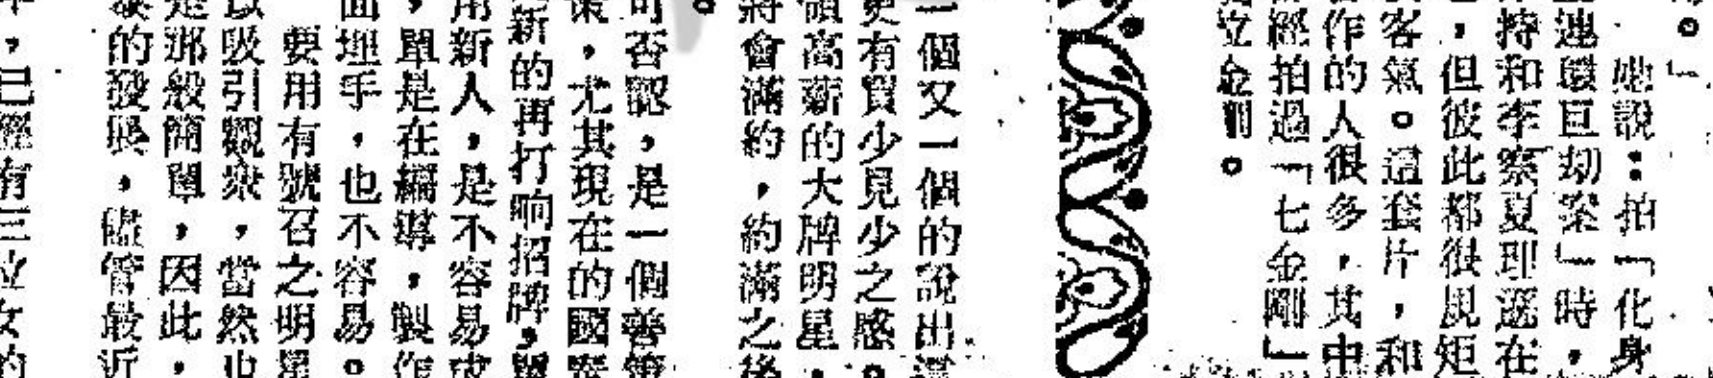 。」
她說：拍「化身
連環巨劫案」時，
持和李察夏理遜在
，但彼此都很規矩
客氣。這套片，和
作的人很多，其中
經拍過「七金剛」
立金剛。
一個又一個的說出還
更有買少見少之感。
領高薪的大牌明星，
將會滿約，約滿之後
。
可否認，是一個善策
策，尤其現在的國泰
新的再打响招牌，單
用新人，是不容易
，單是在編導，製作
面埋手，也不容易。
要用有號召之明星
以吸引觀衆，當然也
是那般簡單，因此，
的發展，儘管最近
年，已經有三位女的